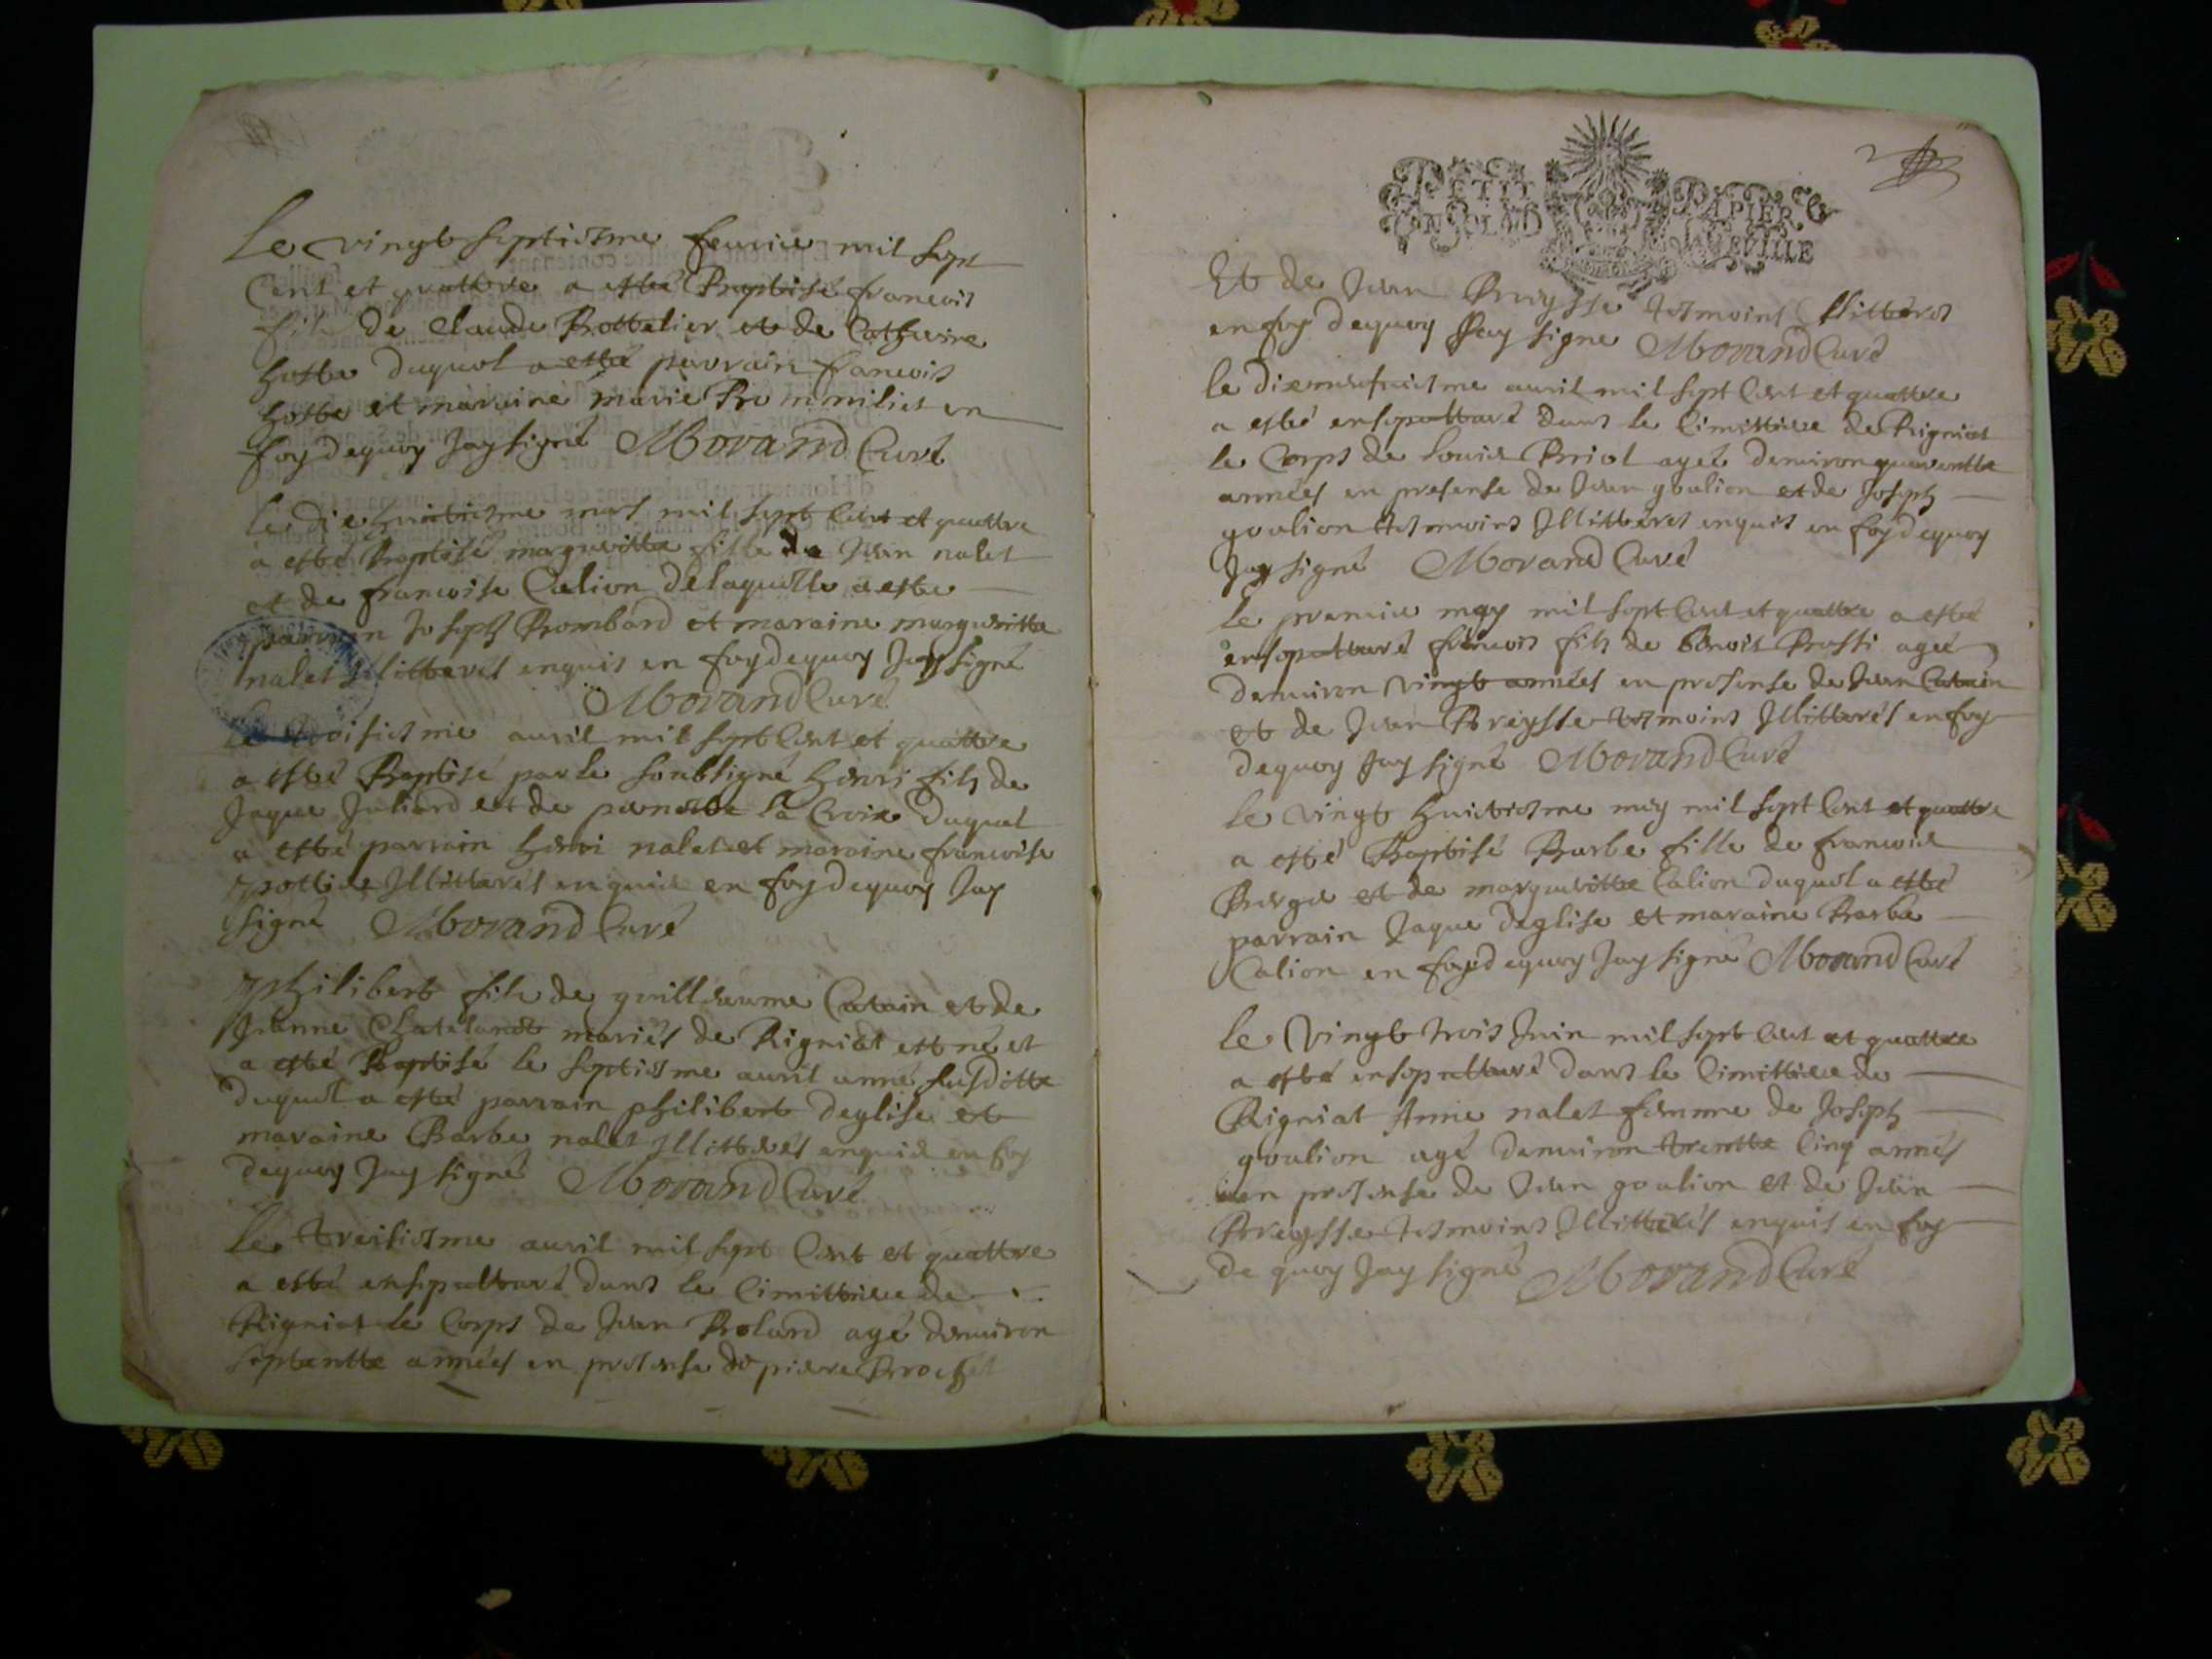 Le vingt septiesme feurier mil sept
Cent et quattre a esté Baptisé francois
fils de Claude Bottelier et de Catherine
hoste duquel a esté parrain francois
hoste et maraine marie Prommiliet en
foy dequoy Jay signé Morand Curé
le die huictiesme mars mil sept Cent et quattre
a esté Baptisé margueritte fille de Jean nalet
et de francoise Calion delaquelle a este
parrien Joseph Brombard et maraine margueritte
nalet Illitterés enquis en foy dequoy Jay signé
Morand Curé
le troisiesme auril mil sept Cent et quattre
a esté Baptisé par le soubsigné henri fils de
Jaque Juliard et de pernette la Croix duquel
a esté parrain henri nalet et maraine francoise
pottier Illitterés enquis en foy dequoy Jay
signé Morand Curé
philibert fils de guillaume Catain et de
Jeanne Chatelandt mariés de Rigniat est né et
a esté Baptisé le septiesme auril anné susditte
duquel a esté parrain philibert deglise et
maraine Barbe nalet Illitterés enquis en foy
dequoy Jay signé Morand Curé
le treisiesme auril mil sept Cent et quattre
a esté ensepulturé dans le Cimittiere de
Rigniat le Corps de Jean Bolard agé denuiron
septantte années en presense de piere Brochet
PETIT PAPIER
Et de Jean Breysse tesmoins Illitterés
en foy dequoy Jay signé Morand Curé
le dixneufuiesme auril mil sept Cent et quattre
a esté ensepulturé dans le Cimittiere de Rigniat
le Corps de Louis Briol agé denuiron quarentte
années en presense de Jean goulion et de Joseph
goulion tesmoins Illitterés enquis en foy dequoy
Jay signé Morand Curé
le premier may mil sept Cent et quattre a esté
ensepulturé francois fils de Benoit Brossi agé
denuiron vingt années en presense de Jean Catain
et de Jean Breysse tesmoins Illitterés en foy
dequoy Jay signé Morand Curé
le vingt huictiesme may mil sept Cent et quattre
a esté Baptisé Barbe fille de francois
Berger et de margueritte Calion duquel a esté
parrain Jaque deglise et maraine Barbe
Calion en foy dequoy Jay signé Morand Curé
le vingt trois Juin mil sept Cent et quattre
a esté ensepulturé dans le Cimittiere de
Rigniat Anne nalet femme de Joseph
goulion agé denuiron trentte Cinq années
en presense de Jean goulion et de Jean
Breysse tesmoins Illitterés enquis en foy
de quoy Jay signé Morand Curé